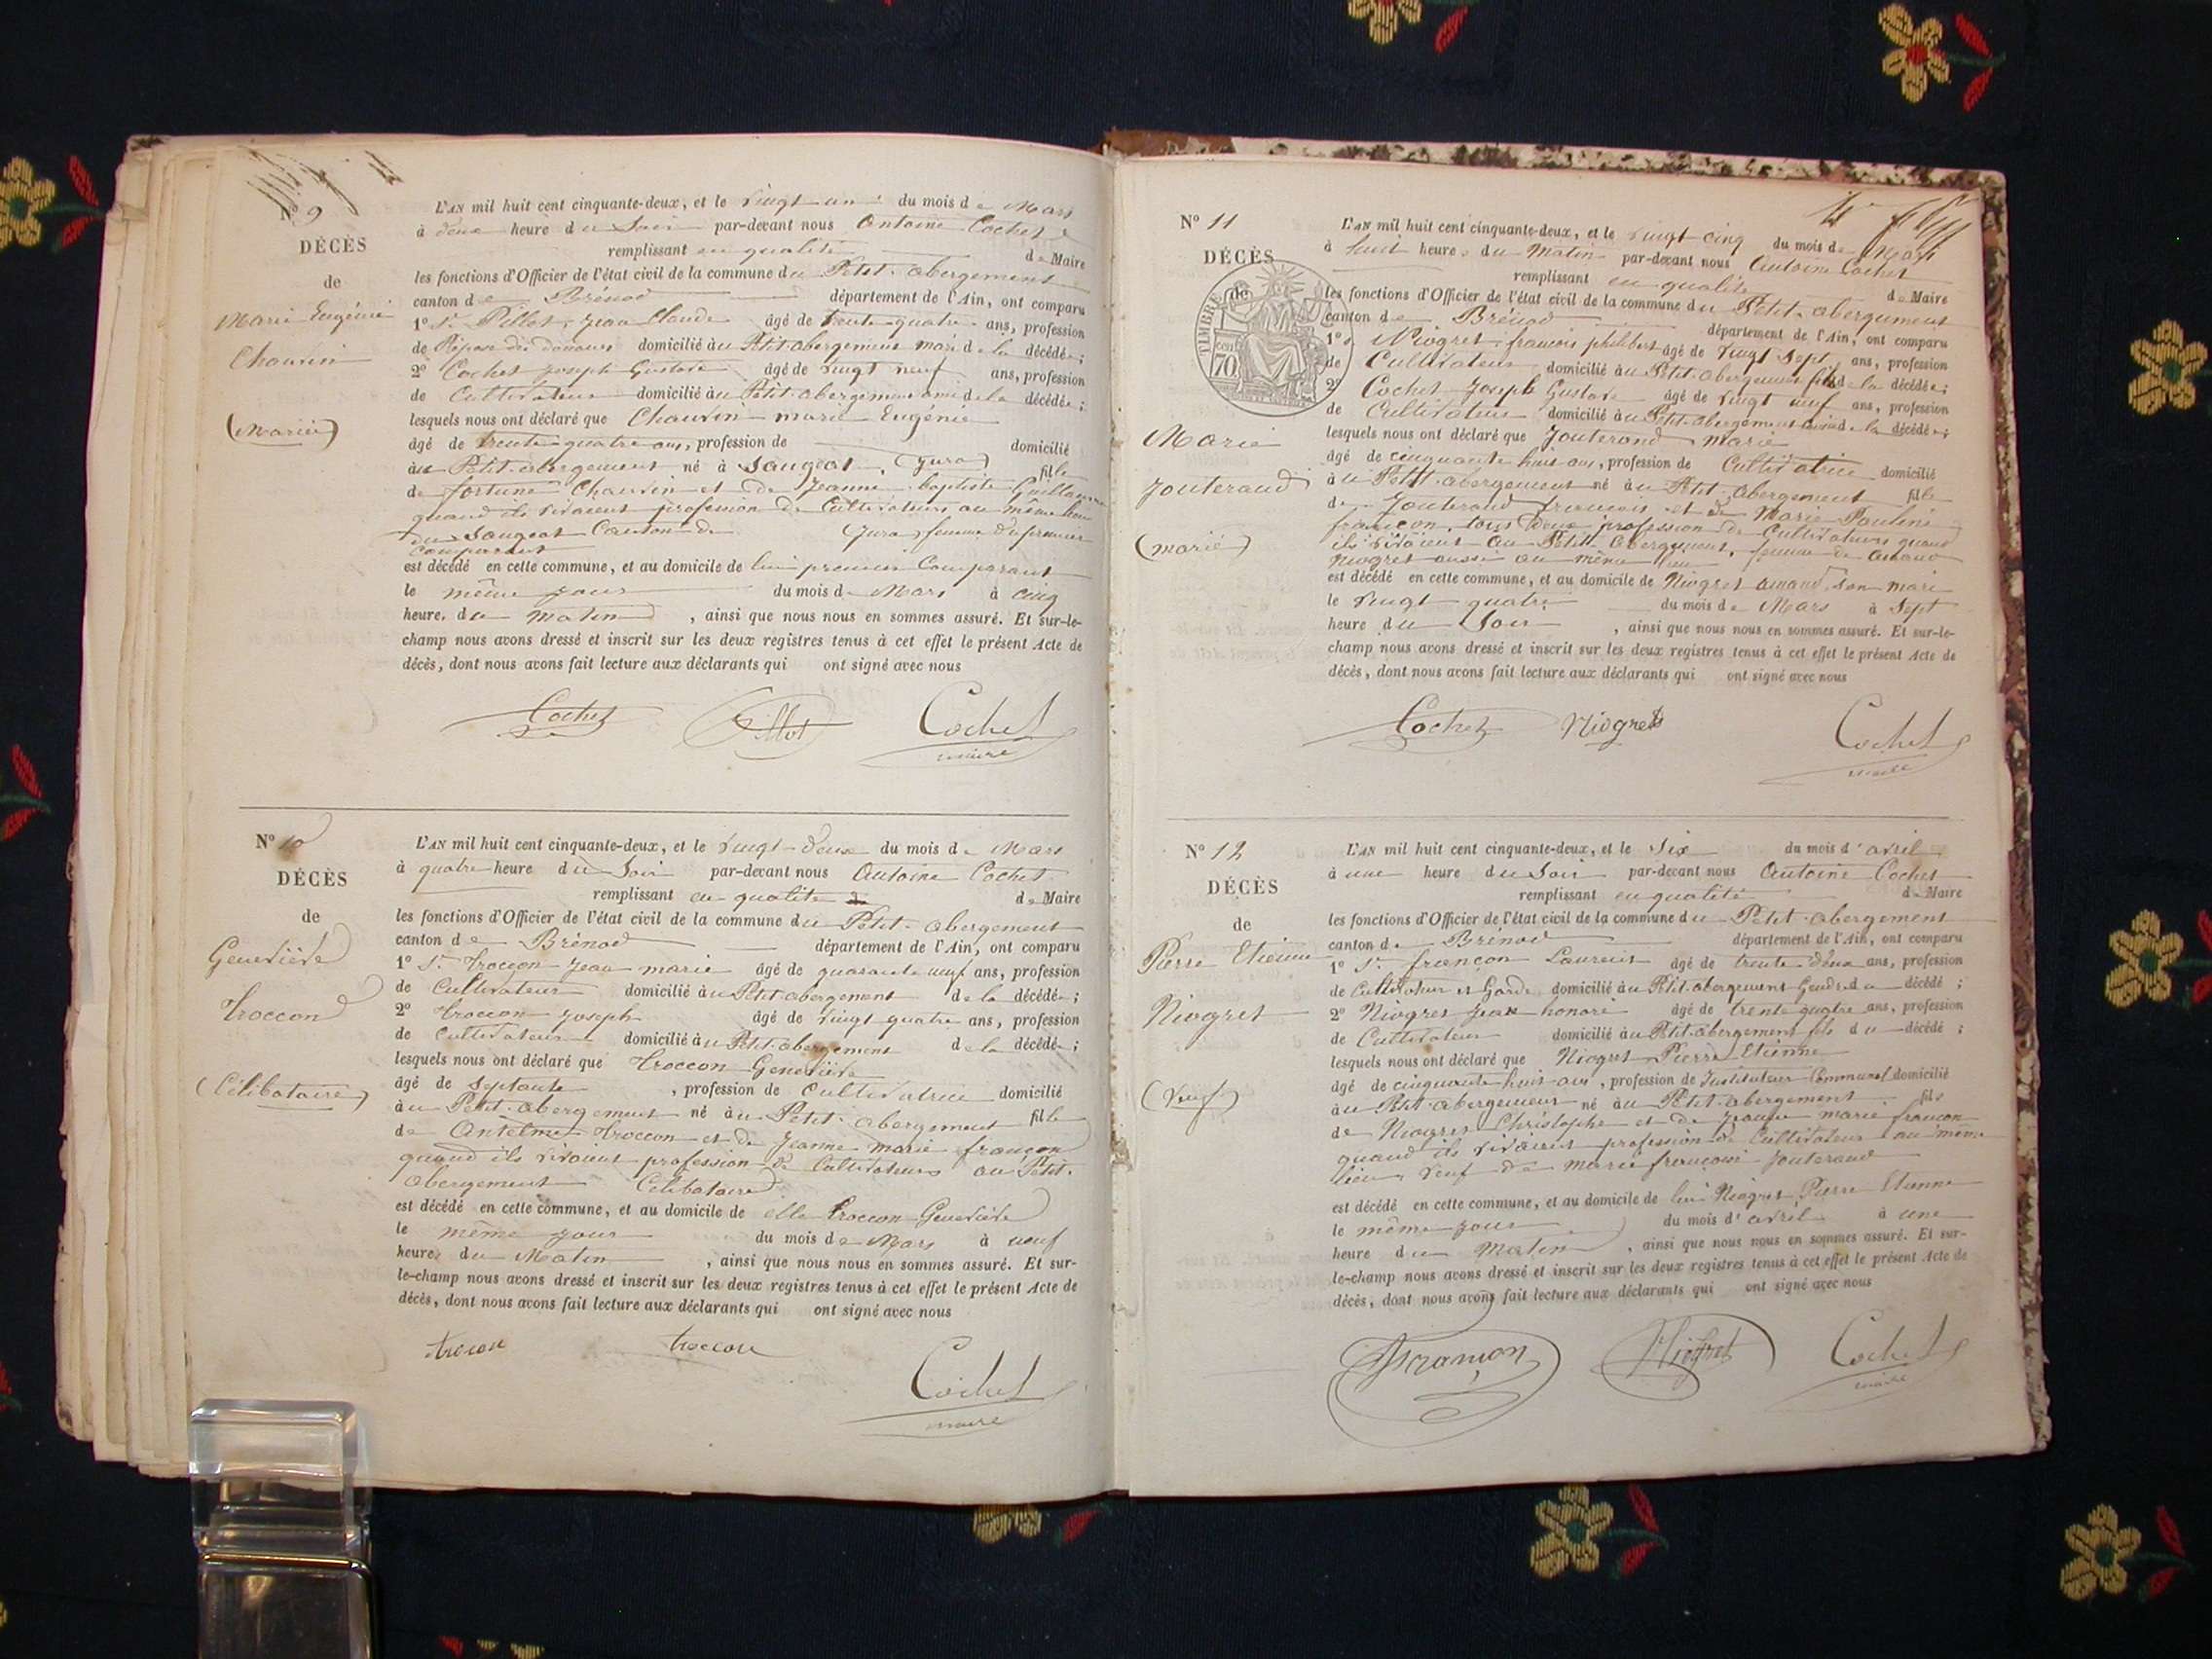 N° 9
DÉCÈS
de
Marie Eugénie
Chauvin
(Mariée)
L'AN mil huit cent cinquante-deux, et le vingt-un du mois de Mars
à deux heure du Soir par-devant nous Antoine Cochet
remplissant en qualité de Maire
les fonctions d'Officier de l'état civil de la commune du Petit-abergement
canton de Brénod département de l'Ain, ont comparu
1° Sr Pillot, Jean Claude âgé de trente quatre ans, profession
de Préposé des douanes domicilié au Petit abergement mari de la décédée;
2° Cochet Joseph Gustave âgé de vingt neuf ans, profession
de Cultivateur domicilié au Petit-abergement ami de la décédée;
lesquels nous ont déclaré que Chauvin marie Eugénie
âgé de trente quatre ans, profession de domicilié
au Petit-abergement né à Saugeot, (Jura) fille
de fortuné Chauvin et de Jeanne baptiste Guillaume
quand ils vivaient profession de Cultivateurs au même lieu
du Saugeot Canton de Jura, femme du premier
Comparant
est décédé en cette commune, et au domicile de lui premier Comparant
le même jour du mois de Mars à cinq
heure du Matin, ainsi que nous nous en sommes assuré. Et sur-le-
champ nous avons dressé et inscrit sur les deux registres tenus à cet effet le présent Acte de
décès, dont nous avons fait lecture aux déclarants qui ont signé avec nous
Cochet Pillot Cochet
maire
N° 10
DÉCÈS
de
Geneviève
Troccon
(Célibataire)
L'AN mil huit cent cinquante-deux, et le vingt-deux du mois de Mars
à quatre heure du Soir par-devant nous Antoine Cochet
remplissant en qualité de Maire
les fonctions d'Officier de l'état civil de la commune du Petit-abergement
canton de Brénod département de l'Ain, ont comparu
1° Sr Troccon Jean marie âgé de quarante neuf ans, profession
de Cultivateur domicilié au Petit abergement de la décédée;
2° Troccon Joseph âgé de vingt quatre ans, profession
de Cultivateur domicilié au Petit-abergement de la décédée;
lesquels nous ont déclaré que Troccon Geneviève
âgé de septante, profession de Cultivatrice domicilié
au Petit-abergement né au Petit-abergement fille
de Antelme Troccon et de Jeanne marie françon
quand ils vivaient profession de Cultivateurs au Petit-
abergement Célibataire
est décédé en cette commune, et au domicile de elle troccon Geneviève
le même jour du mois de Mars à neuf
heures du Matin, ainsi que nous nous en sommes assuré. Et sur-
le-champ nous avons dressé et inscrit sur les deux registres tenus à cet effet le présent Acte de
décès, dont nous avons fait lecture aux déclarants qui ont signé avec nous
troccon troccon Cochet
maire
N° 11
DÉCÈS
de
TIMBRE
70
Marie
Jouterand
(marié)
L'AN mil huit cent cinquante-deux, et le vingt cinq du mois de Mars
à huit heures du Matin par-devant nous Antoine Cochet
remplissant en qualité de Maire
les fonctions d'Officier de l'état civil de la commune du Petit-abergement
canton de Brénod département de l'Ain, ont comparu
1° Niogret françois philibert âgé de vingt sept ans, profession
de Cultivateur domicilié au Petit-abergement fils de la décédée;
2° Cochet Joseph Gustave âgé de vingt neuf ans, profession
de Cultivateur domicilié au Petit-abergement de la décédée;
lesquels nous ont déclaré que Jouterand marie
âgé de cinquante huit ans, profession de Cultivatrice domicilié
au Petit-abergement né au Petit-abergement fille
de Jouterand françois et de Marie Pauline
françon, tous deux profession de Cultivateurs quand
ils vivaient au Petit abergement, femme de amand
Niogret aussi au même lieu
est décédé en cette commune, et au domicile de Niogret amand son mari
le vingt quatre du mois de Mars à Sept
heure du Soir, ainsi que nous nous en sommes assuré. Et sur-le-
champ nous avons dressé et inscrit sur les deux registres tenus à cet effet le présent Acte de
décès, dont nous avons fait lecture aux déclarants qui ont signé avec nous
Cochet Niogret Cochet
maire
N° 12
DÉCÈS
de
Pierre Etienne
Niogret
(Veuf)
L'AN mil huit cent cinquante-deux, et le Six du mois d'avril
à une heure du Soir par-devant nous Antoine Cochet
remplissant en qualité de Maire
les fonctions d'Officier de l'état civil de la commune du Petit-abergement
canton de Brénod département de l'Ain, ont comparu
1° Sr françon Laurent âgé de trente-deux ans, profession
de Cultivateur et Garde domicilié au Petit-abergement Gendre du décédé;
2° Niogret Jean honoré âgé de trente quatre ans, profession
de Cultivateur domicilié au Petit-abergement fils du décédé;
lesquels nous ont déclaré que Niogret Pierre Etienne
âgé de cinquante huit ans, profession de Instituteur Communal domicilié
au Petit-abergement né au Petit-abergement fils
de Niogret Christophe et de Jeanne marie françon
quand ils vivaient profession de Cultivateur au même
lieu, Veuf de marie françoise Jouterand
est décédé en cette commune, et au domicile de lui Niogret Pierre Etienne
le même jour du mois d'avril à une
heure du Matin, ainsi que nous nous en sommes assuré. Et sur-
le-champ nous avons dressé et inscrit sur les deux registres tenus à cet effet le présent Acte de
décès, dont nous avons fait lecture aux déclarants qui ont signé avec nous
françon Niogret Cochet
maire